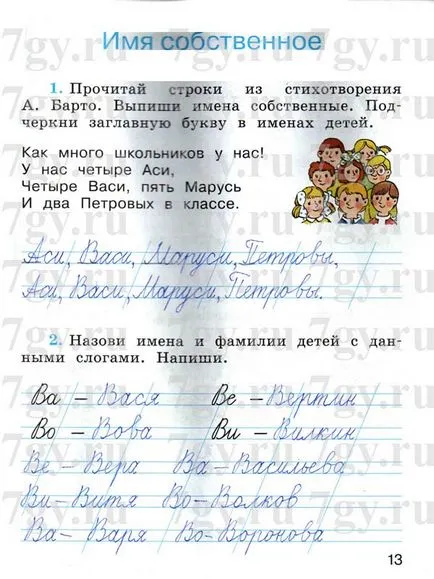 Имя собственное
1. Прочитай строки из стихотворения
А. Барто. Выпиши имена собственные. Под-
черкни заглавную букву в именах детей.
Как много школьников у нас!
У нас четыре Аси,
Четыре Васи, пять Марусь
И два Петровых в классе.
Аси, Васи, Маруси, Петровы,
Аси, Васи, Маруси, Петровы.
2. Назови имена и фамилии детей с дан-
ными слогами. Напиши.
Ва – Вася Ве – Вертин
Во – Вова Ви – Вилкин
Ве – Вера Ва – Васильева
Ви – Витя Во – Волков
Ва – Варя Во – Воронова
13
7gy.ru